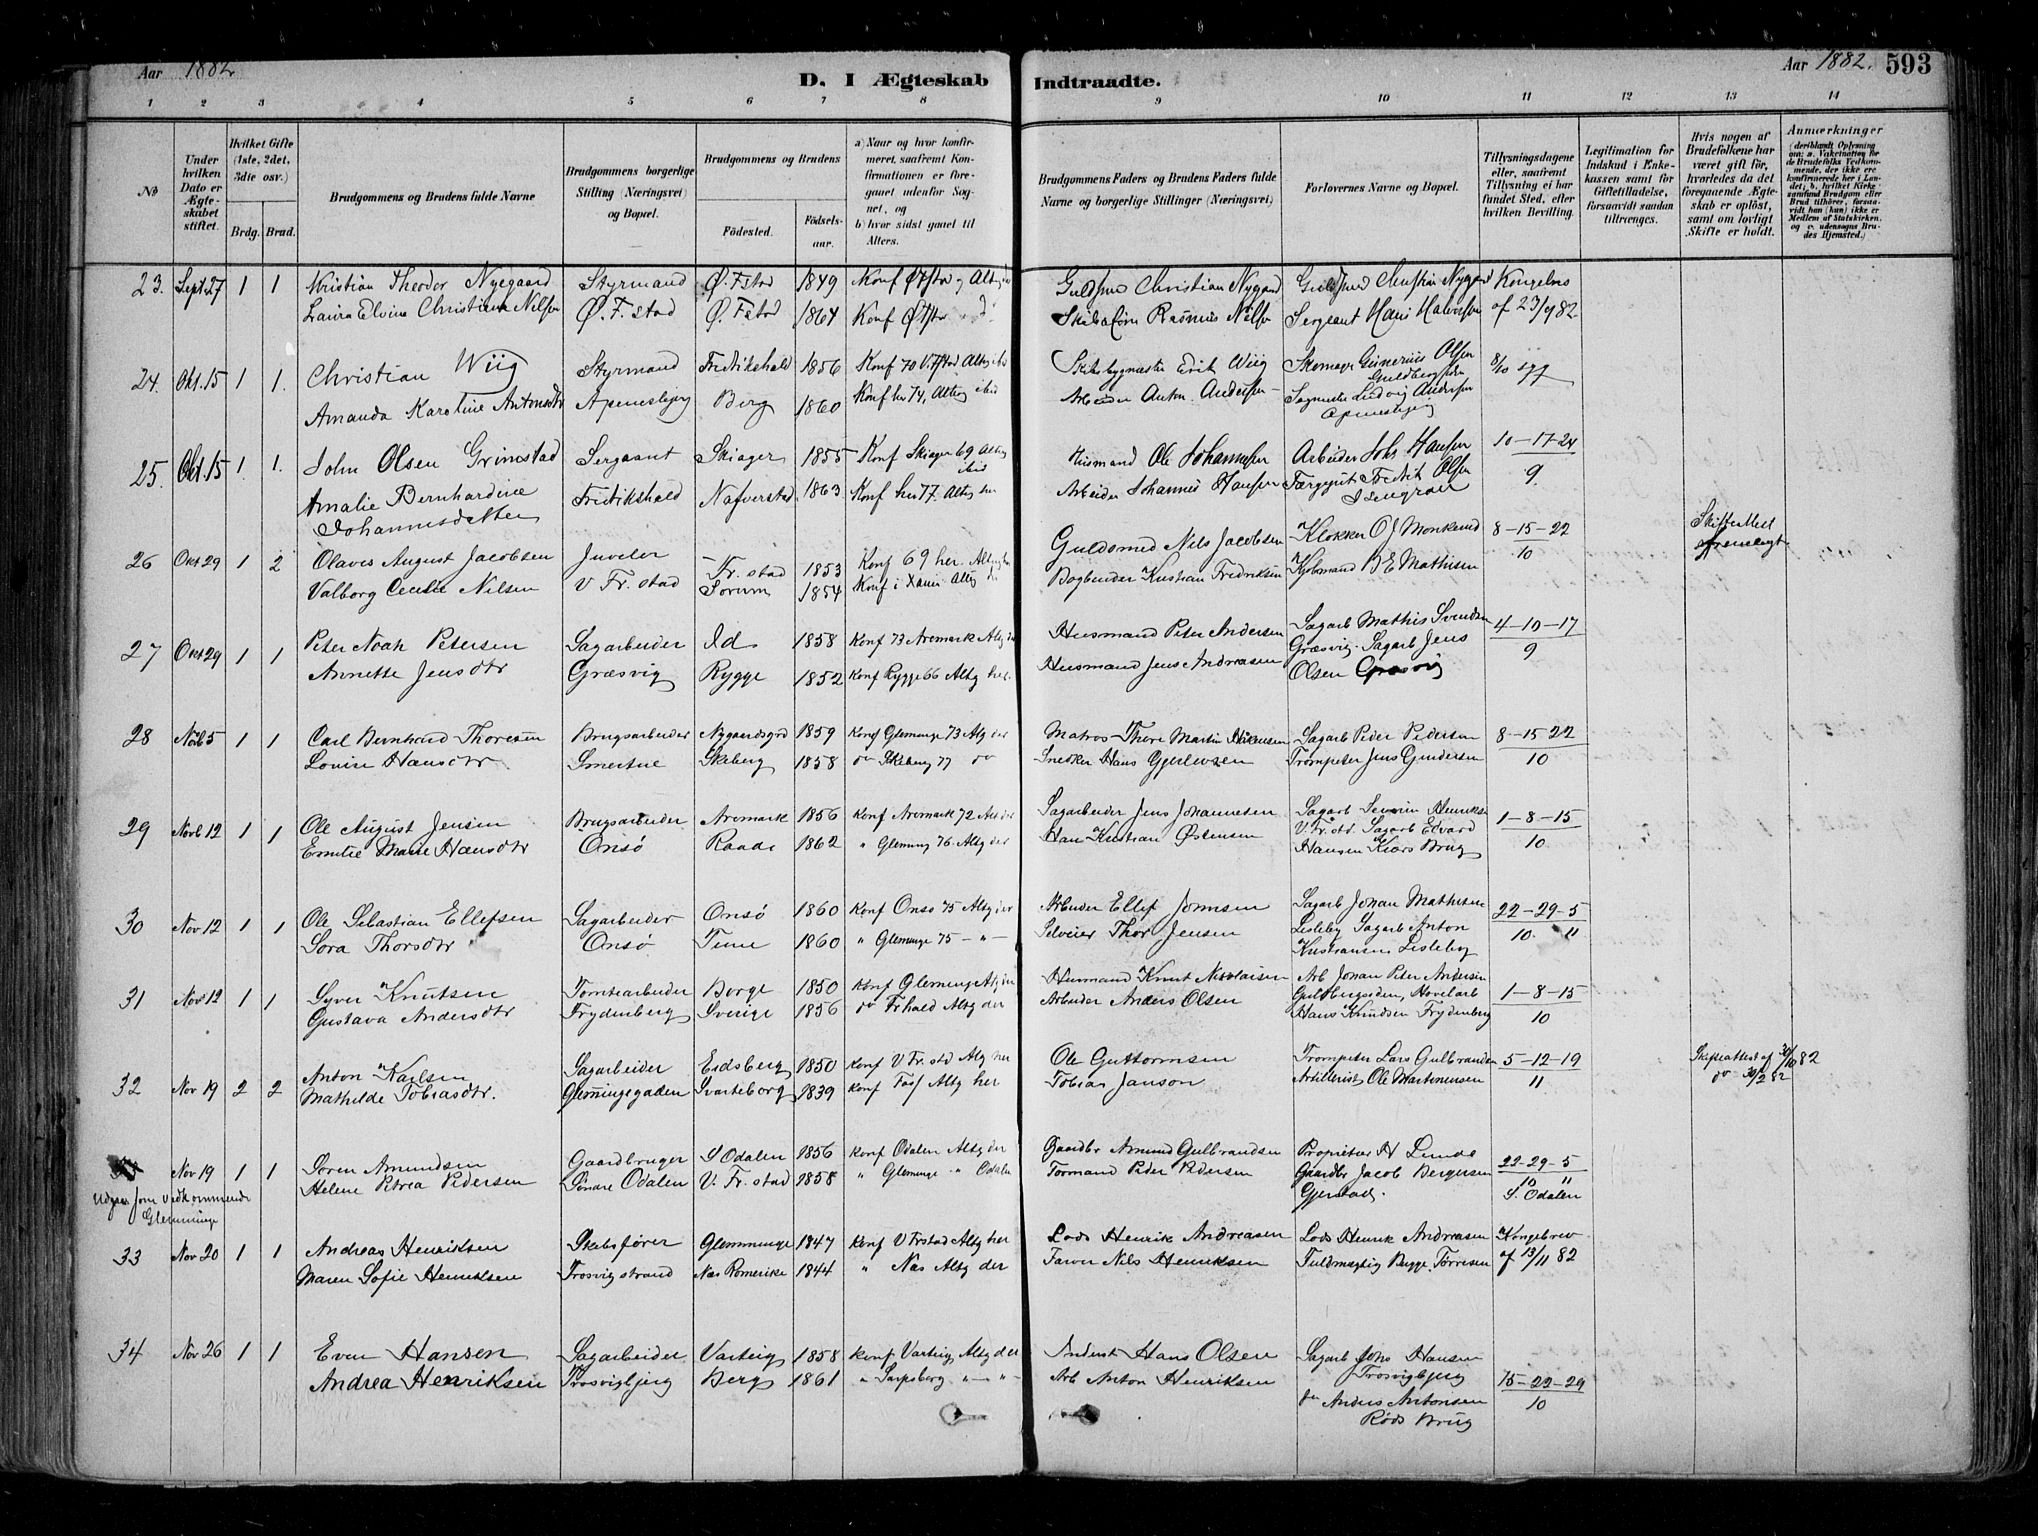 Aar 1882.
D. I Ægteskab Indtraadte.
Aar 1882. 593
1 2 3 4 5 6 7 8 9 10 11 12 13 14
No
Under hvilken Dato er Ægteskabet stiftet.
Hvilket Gifte (1ste, 2det, 3die osv.)
Brdg. Brud.
Brudgommens og Brudens fulde Navne
Brudgommens borgerlige Stilling (Næringsvei) og Bopæl.
Brudgommens og Brudens
Fødested. Fødselsaar.
a) Naar og hvor konfirmeret, saafremt Konfirmationen er foregaaet udenfor Sognet, og
b) hvor sidst gaaet til Alters.
Brudgommens Faders og Brudens Faders fulde Navne og borgerlige Stillinger (Næringsvei)
Forlovernes Navne og Bopæl.
Tillysningsdagene eller, saafremt Tillysning ei har fundet Sted, efter hvilken Bevilling.
Legitimation for Indskud i Enkekassen samt for Giftetilladelse, forsaavidt saadan tiltrænges.
Hvis nogen af Brudefolkene har været gift før, hvorledes da det foregaaende Ægteskab er opløst, samt om lovligt Skifte er holdt.
Anmærkninger (deriblandt Oplysning om: a. Vakcination for de Brudefolks Vedkommende, der ikke ere konfirmerede her i Landet; b. hvilket Kirkesamfund Brudgom eller Brud tilhører, forsaavidt han (hun) ikke er Medlem af Statskirken, og c. udensogns Brudes Hjemsted.)
23. Sept 27 1 1 Kristian Theodor Nygaard Styrmand Ø. Fstad 1849 Konf Øfstad og Altg Guldsmed Christian Nygaard Guldsmed Christian Nygaard Kongebrev
Laura Elvine Christiane Nilsen Ø. F. stad Ø. Fstad 1864 Konf Øfstad Skibsfører Rasmus Nilsen Sergeant Hans Halvorsen af 23/9 82
24. Okt. 15 1 1. Christian Wiig Styrmand Fredrikshald 1856 Konf 70 V Fstad Altg ibid Skibsbygmester Erik Wiig Olsen 8/10
Amanda Karoline Antonsdtr Apenesbjerg Berg 1860 Konf her 74, Altg ibid Arbeider Anton Andersen Ludvig Andersen
Apenesbjerg
25. Okt 15 1. 1. John Olsen Grimstad Sergeant Skiager 1855 Konf Skiager 69 Altg ibid Husmand Ole Johannesen Arbeider Johs Hansen 10-17-24
Amalie Bernhardine Fredrikshald Nafverstad 1863 Konf her 77 Altg her Arbeider Johannes Hansen Fredrik Olsen 9
Johannesdatter
26 Okt 29 1 2 Olaves August Jacobsen Juveler Fr. stad 1853 Konf 69 her. Guldsmed Nils Jacobsen Klokker O J Monkerud 8-15-22
Valborg Cecilie Nilsen V Fr. stad Sorum 1854 Konf i Xania Altg Bogbinder Kristian Fredriksen Kjøbmand B E Mathisen 10
27 Okt 29 1 1 Peter Noah Petersen Sagarbeider Id 1858 Konf 73 Aremark Altg der Husmand Peter Andersen Sagarb Mathis Svendsen 4-10-17
Annette Jensdtr Græsvig Rygge 1852 Konf Rygge 66 Altg her. Husmand Jens Andreasen Græsvig. Sagarb Jens 9
Olsen Græsvig
28 Novb 5 1 1 Carl Bernhard Thoresen Brugsarbeider Nygaardsgrd 1859 Konf Glemminge 73 Altg der Matros Thore Martin Sagarb Peder Pedersen 8-15 22
Lovise Hansdtr Smertue Skeberg 1858 do Skeberg 77 do Snedker Hans Gjerlevsen Trompeter Jens Gundersen 10
29 Novb 12 1 1 Ole August Jensen Brugsarbeider Aremark 1856 Konf Aremark 72 Altg der Sagarbeider Jens Johannesen Sagarb Severin Henriksen 1-8-15
Emilie Marie Hansdtr Onsø Raade 1862 " Glemming 76. Altg der Hans Kristian Østensen V. Fr. std. Sagarb Edvard 10
Hansen Kiærs Brug
30 Nov 12 1 1 Ole Sebastian Ellefsen Sagarbeider Onsø 1860 Konf Onsø 75 Altg der Arbeider Ellef Jonnsen Sagarb Johan Mathisen 22-29-5
Sora Thorsdtr Onsø Tune 1860 " Glemminge 75 - " - Selveier Thor Jensen Lisleby Sagarb Anton 10 11
Kristiansen Lisleby
31 Nov 12 1 1 Syver Knutsen Tomtearbeider Borge 1850 Konf Glemminge Altg der Husmand Knut Nikolaisen Arb Johan Peter Andersen 1-8-15
Gustava Andersdtr Frydenberg Sverige 1856 do Frhald Altg der Arbeider Anders Olsen Guldbergsiden, Høvelarb 10
Hans Knudsen Frydenberg
32 Nov 19 2 2 Anton Karlsen Sagarbeider Eidsberg 1850 Konf V Fr. std Altg her Ole Guttormsen Trompeter Lars Gulbrandsen 5-12-19 Skifteattest af 30/10 82
Mathilde Tobiasdtr. Glemmingegaden Svarteborg 1839 Konf Foss Altg her Tobias Janson Artillerist Ole Martinussen 11 do 30/2 82
Nov 19 1 1 Søren Amundsen Gaardbruger S Odalen 1856 Konf Odalen Altg der Gaardbr Amund Gulbrandsen Proprietær H Lunde 22-29-5
Helene Petrea Pedersen Søndre Odalen V. Fr. stad 1858 " Glemminge " Odalen Tømmand Peder Pedersen Gaardbr Jacob Bergersen 10 11
Udgaar som vedkommende Glemminge Gjerstad. S. Odalen
33 Nov 20 1 1 Andreas Henriksen Skibsfører Glemminge 1847 Konf V Frstad Altg her Lods Henrik Andreasen Lods Henrik Andreasen Kongebrev
Maren Sofie Henriksen Trosvigstrand Næs Romerike 1844 " Næs Altg der Farver Nils Henriksen Fuldmægtig Bugge Tørresen af 13/11 82
34 Nov 26 1 1 Even Hansen Sagarbeider Varteig 1858 Konf Varteig Altg der Inderst Hans Olsen Sagarb Johs Hansen
Andrea Henriksen Trosvigbjerg Berg 1861 " Sarpsborg " - " - Arb Anton Henriksen Trosvigbjerg 15-22-29
Anders Antonsen 10
Røds Brug